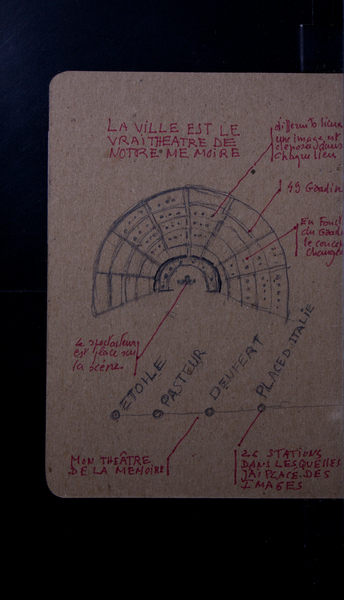 LA VILLE EST LE
VRAI THEATRE DE
NOTRE MEMOIRE
différents lieux
une image est
déposée dans
chaque lieu
49 Gradin
En Fonct
du Gradi
le
change
Le spectateur
est placé sur
la scène
ETOILE
PASTEUR
DENFERT
PLACE D'ITALIE
MON THEÂTRE
DE LA MEMOIRE
26 STATIONS
DANS LESQUELLES
J'AI PLACE DES
IMAGES